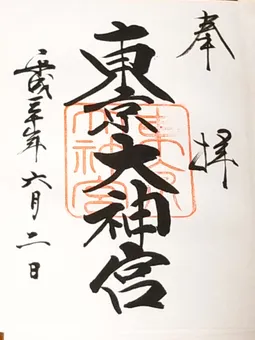 奉拝
東京大神宮
東京大神宮
平成三十年六月二日